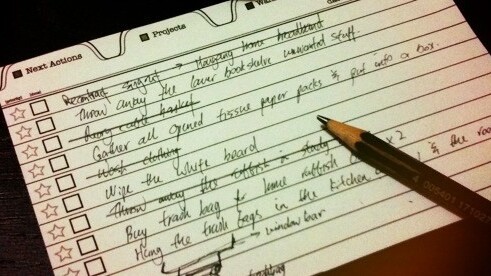 Next Actions Projects Wa
Recontract singnet → Managing home broadband
Throw away the lower bookshelve unwanted stuff.
Gather all opened tissue paper packs & put into a box.
Wash clothing
Wipe the white board
Throw away the rubbish in study
Buy trash bag for home rubbish x 2
Hang the trash bags in the kitchen & the roo
→ window bar
005401 171027